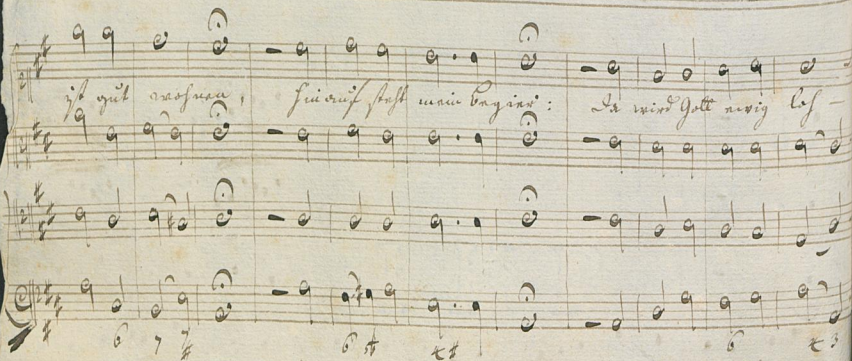 ist gut wohnen, hinauf steht mein begier: Da wird Gott ewig loh-
6 7 7 6 6 3